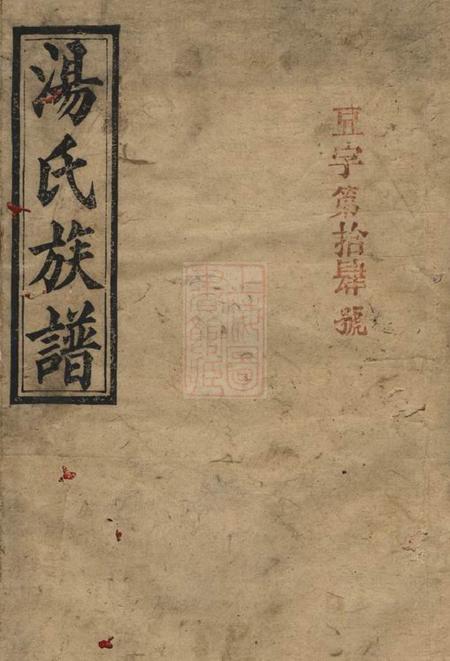 亘字第拾肆號
湯氏族譜
上海圖
書館藏